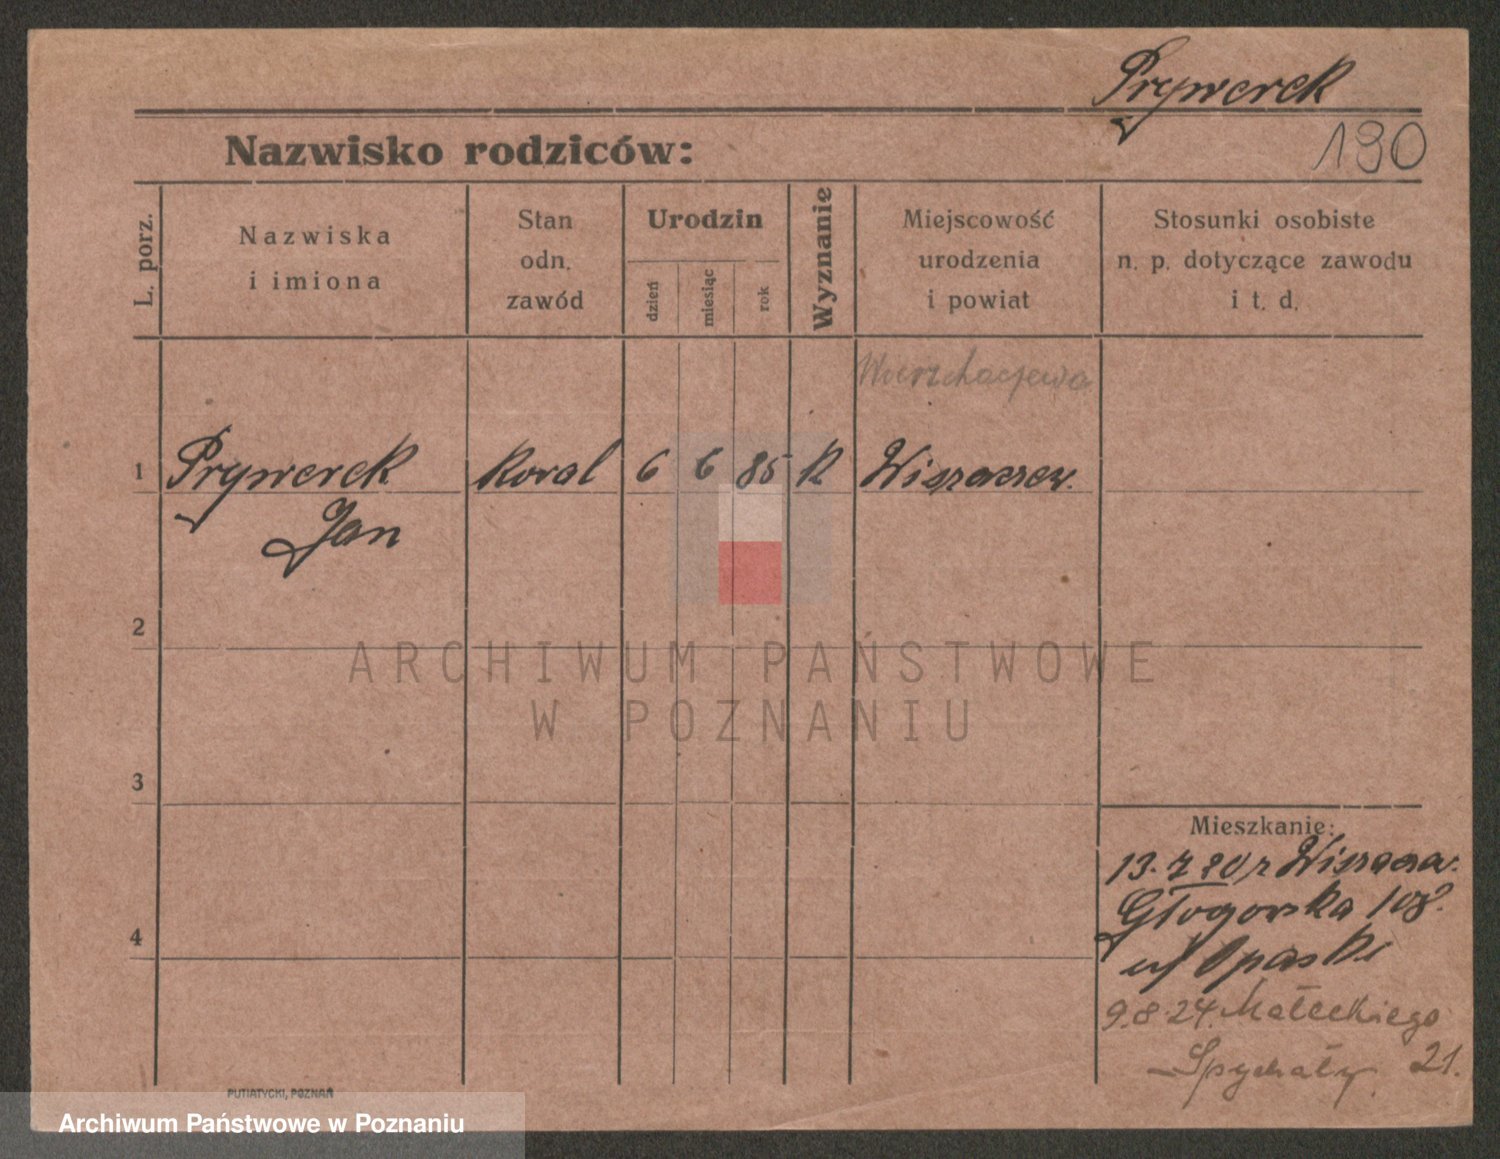 Prywerek
190
Nazwisko rodziców:
L. porz.
Nazwiska
i imiona
Stan
odn.
zawód
Urodzin
dzień
miesiąc
rok
Wyznanie
Miejscowość
urodzenia
i powiat
Stosunki osobiste
n. p. dotyczące zawodu
i t. d.
1 Prywerek Kowal 6 6 85 K
Jan
2
ARCHIWUM PAŃSTWOWE
W POZNANIU
3
Mieszkanie:
13. 7 20 r
Głogowska 108.
u/ Opaski
4
9.8.24. Małeckiego
Spychały 21.
PUTIATYCKI, POZNAŃ
Archiwum Państwowe w Poznaniu